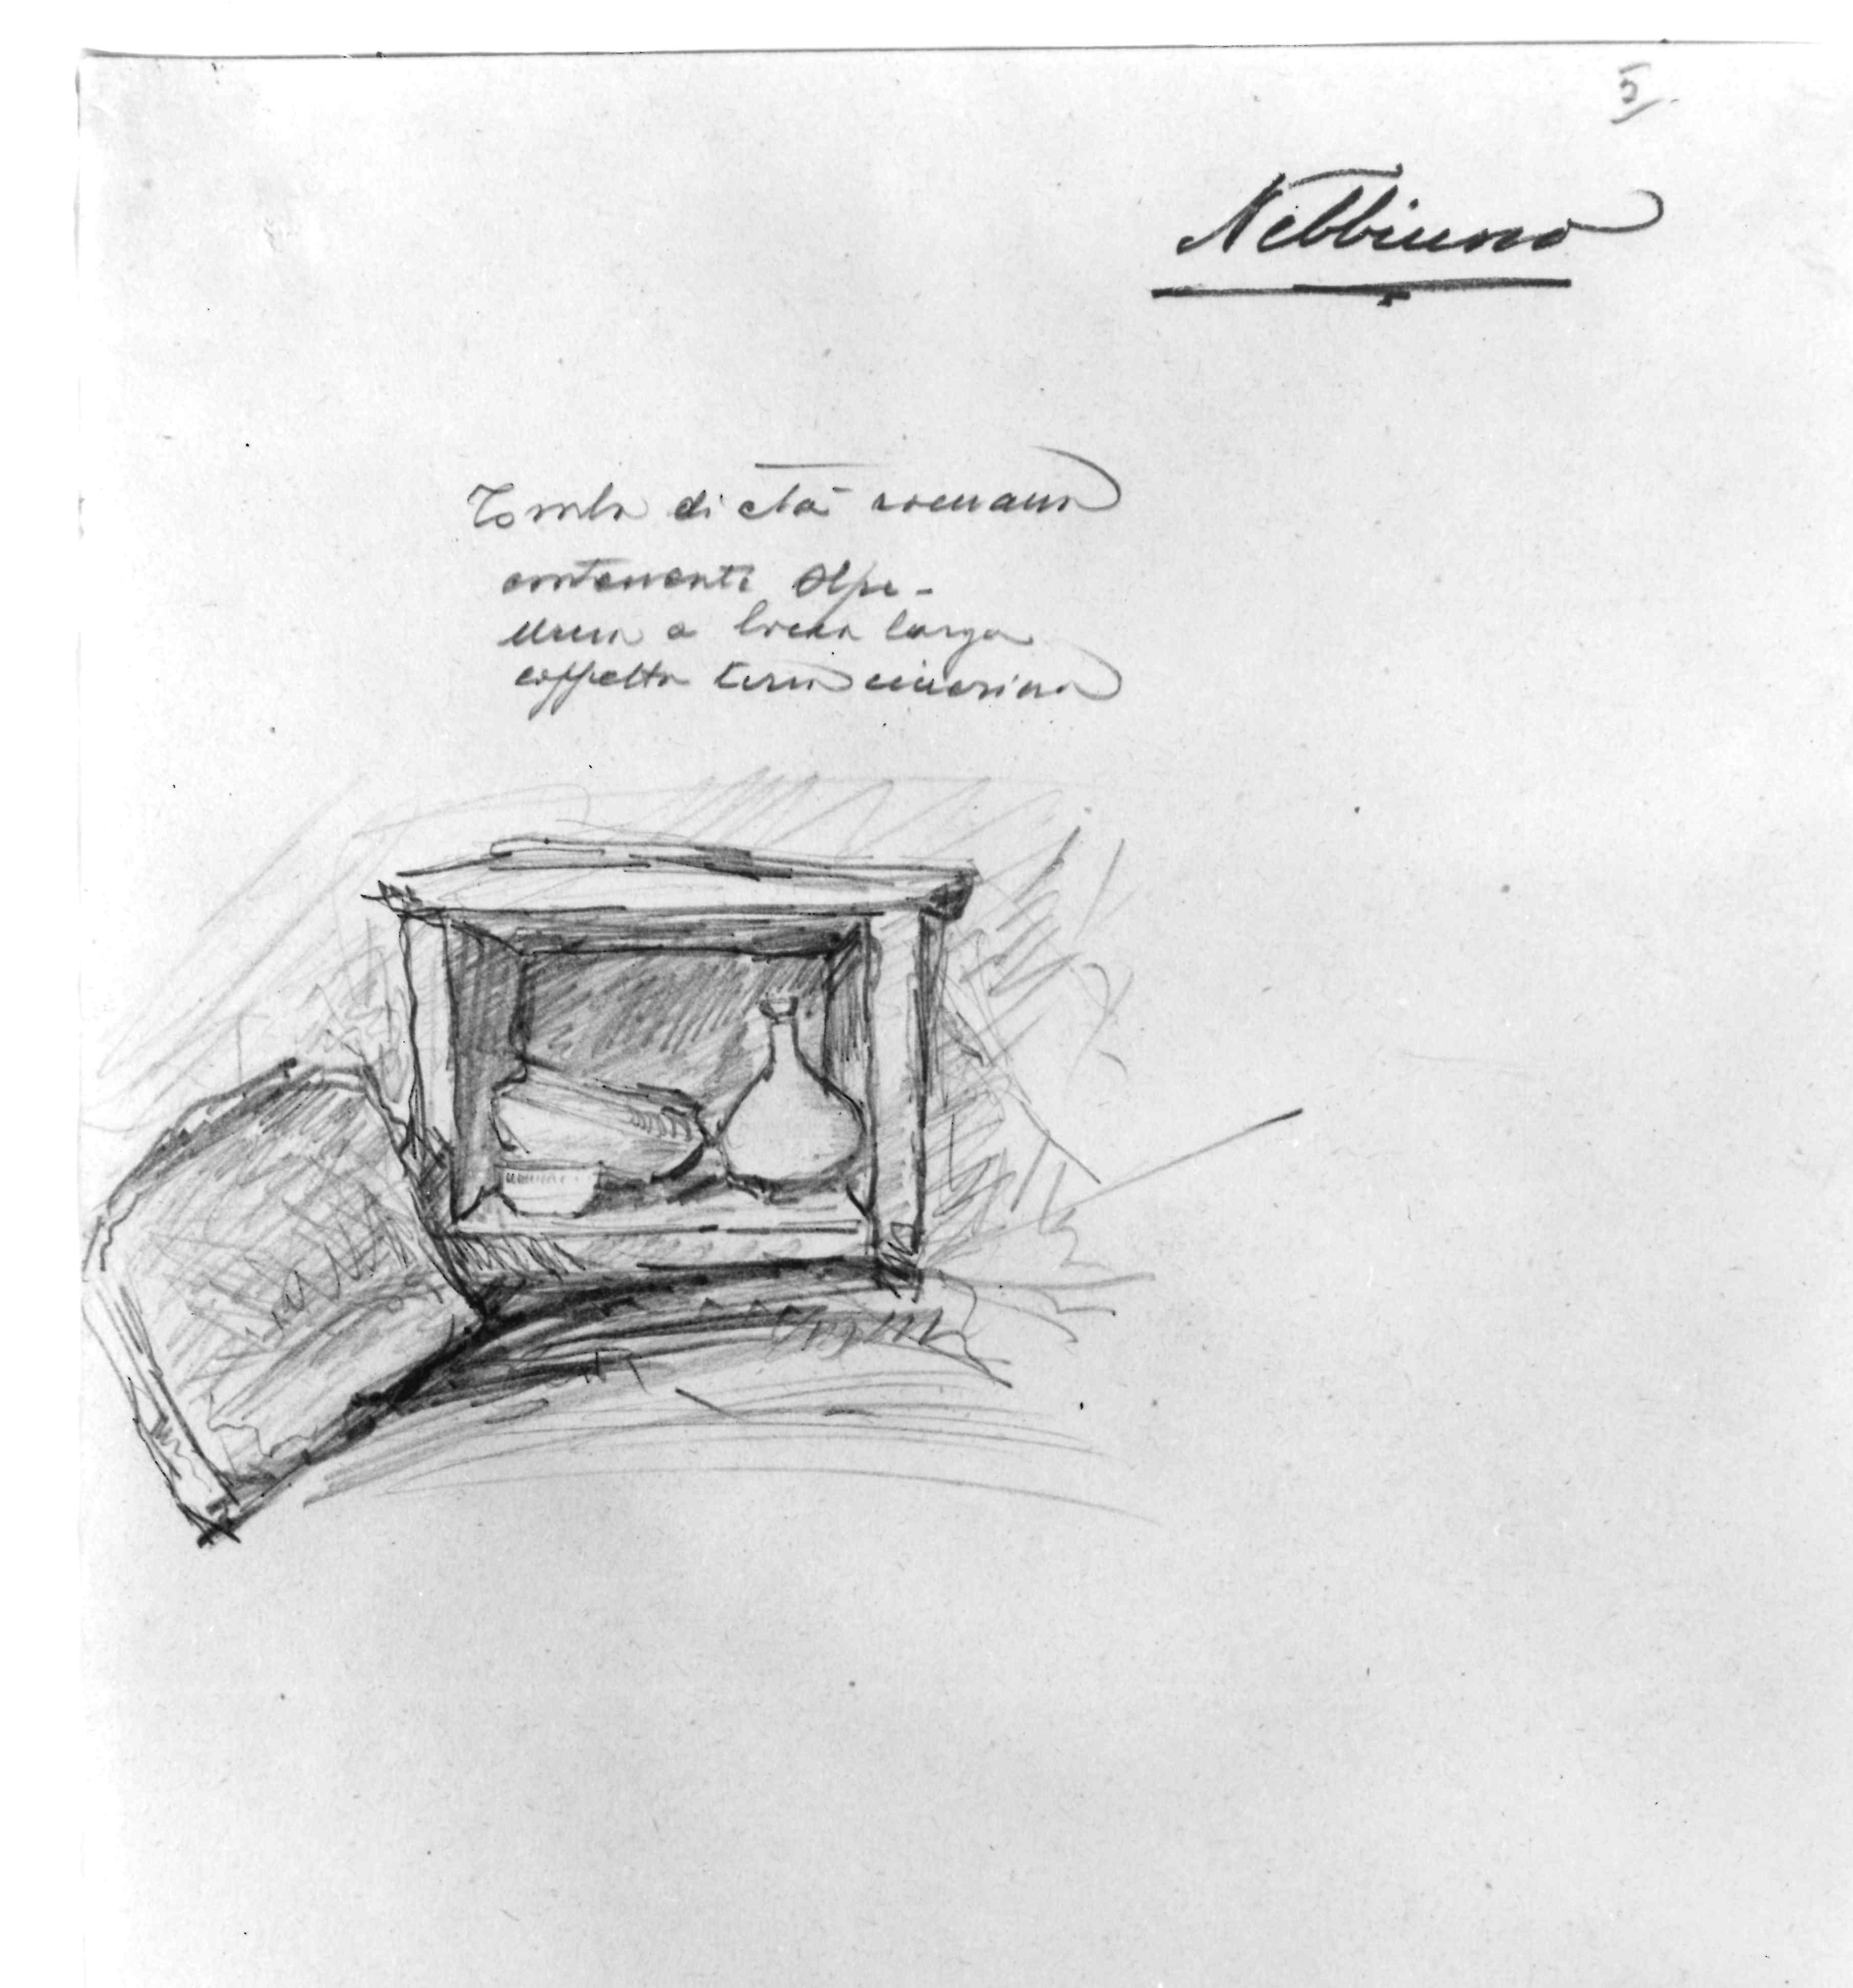 5
Nebbiuno
Tomba di età romana
contenente Olpe -
Urna a bocca larga
coppetta terra cinerina